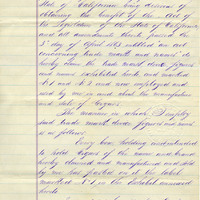 State of California being desirous of
obtaining the benefit of the Act of
the Legislature of the State of California
and all amendments thereto passed the
3rd day of April 1863 entitled an act
concerning trade marks and names do
hereby claim the trade mark device figures
and names exhibited hereto and marked
No 1 and No 2 and now employed and
used by me in and about the manufacture
and sale of Cigars.
The manner in which I employ
said trade mark device figures and names is
as follows
Every box holding manufactured
to hold cigars of the name and brand
hereby claimed and manufactured and sold
by me has pasted on it the label
marked No 1 in the Exhibit annexed
hereto